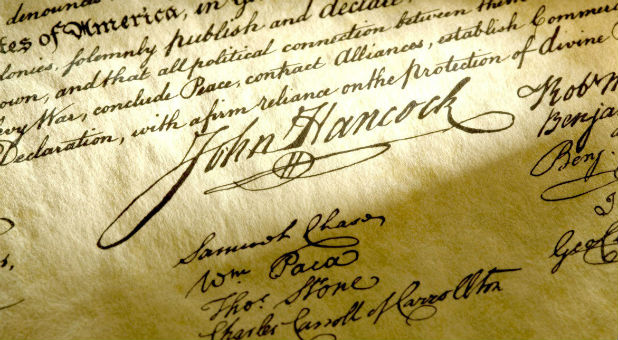 tes of America, in
lonies, solemnly publish and declare,
own, and that all political connection between them
evy War, conclude Peace, contract Alliances, establish Commerc
Declaration, with a firm reliance on the protection of divine
John Hancock
Samuel Chase
Wm Paca
Thos Stone
Charles Carroll of Carrollton
Robt M
Benja
Benj.
Geo